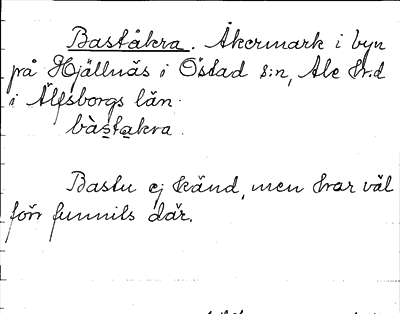 Baståkra. Åkermark i byn
på Hjällnäs i Östad s:n, Ale hr:d
i Älfsborgs län.
bàstakra.
Bastu ej känd, men har väl
förr funnits där.